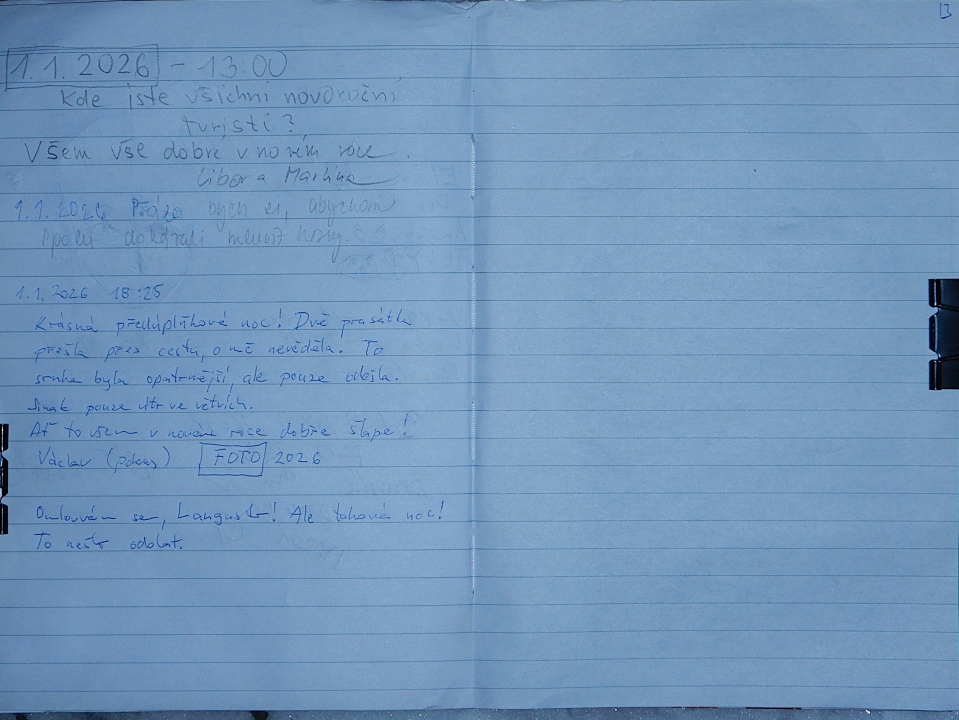 13
1.1.2026 - 13:00
Kde jste všichni novoroční
turisti?
Všem vše dobré v novém roce.
Libor a Martina
1.1.2026 Přála bych si, abychom
dokázali mluvit
1.1.2026 18:25
Krásná předúplňková noc! Dvě prasátka
přešla přes cestu, o mě nevěděla. To
srnka byla opatrnější, ale pouze odešla.
Jinak pouze vítr ve větvích.
Ať to všem v novém roce dobře šlape!
Václav FOTO 2026
Omlouvám se, Langustr! Ale taková noc!
To nešlo odolat.